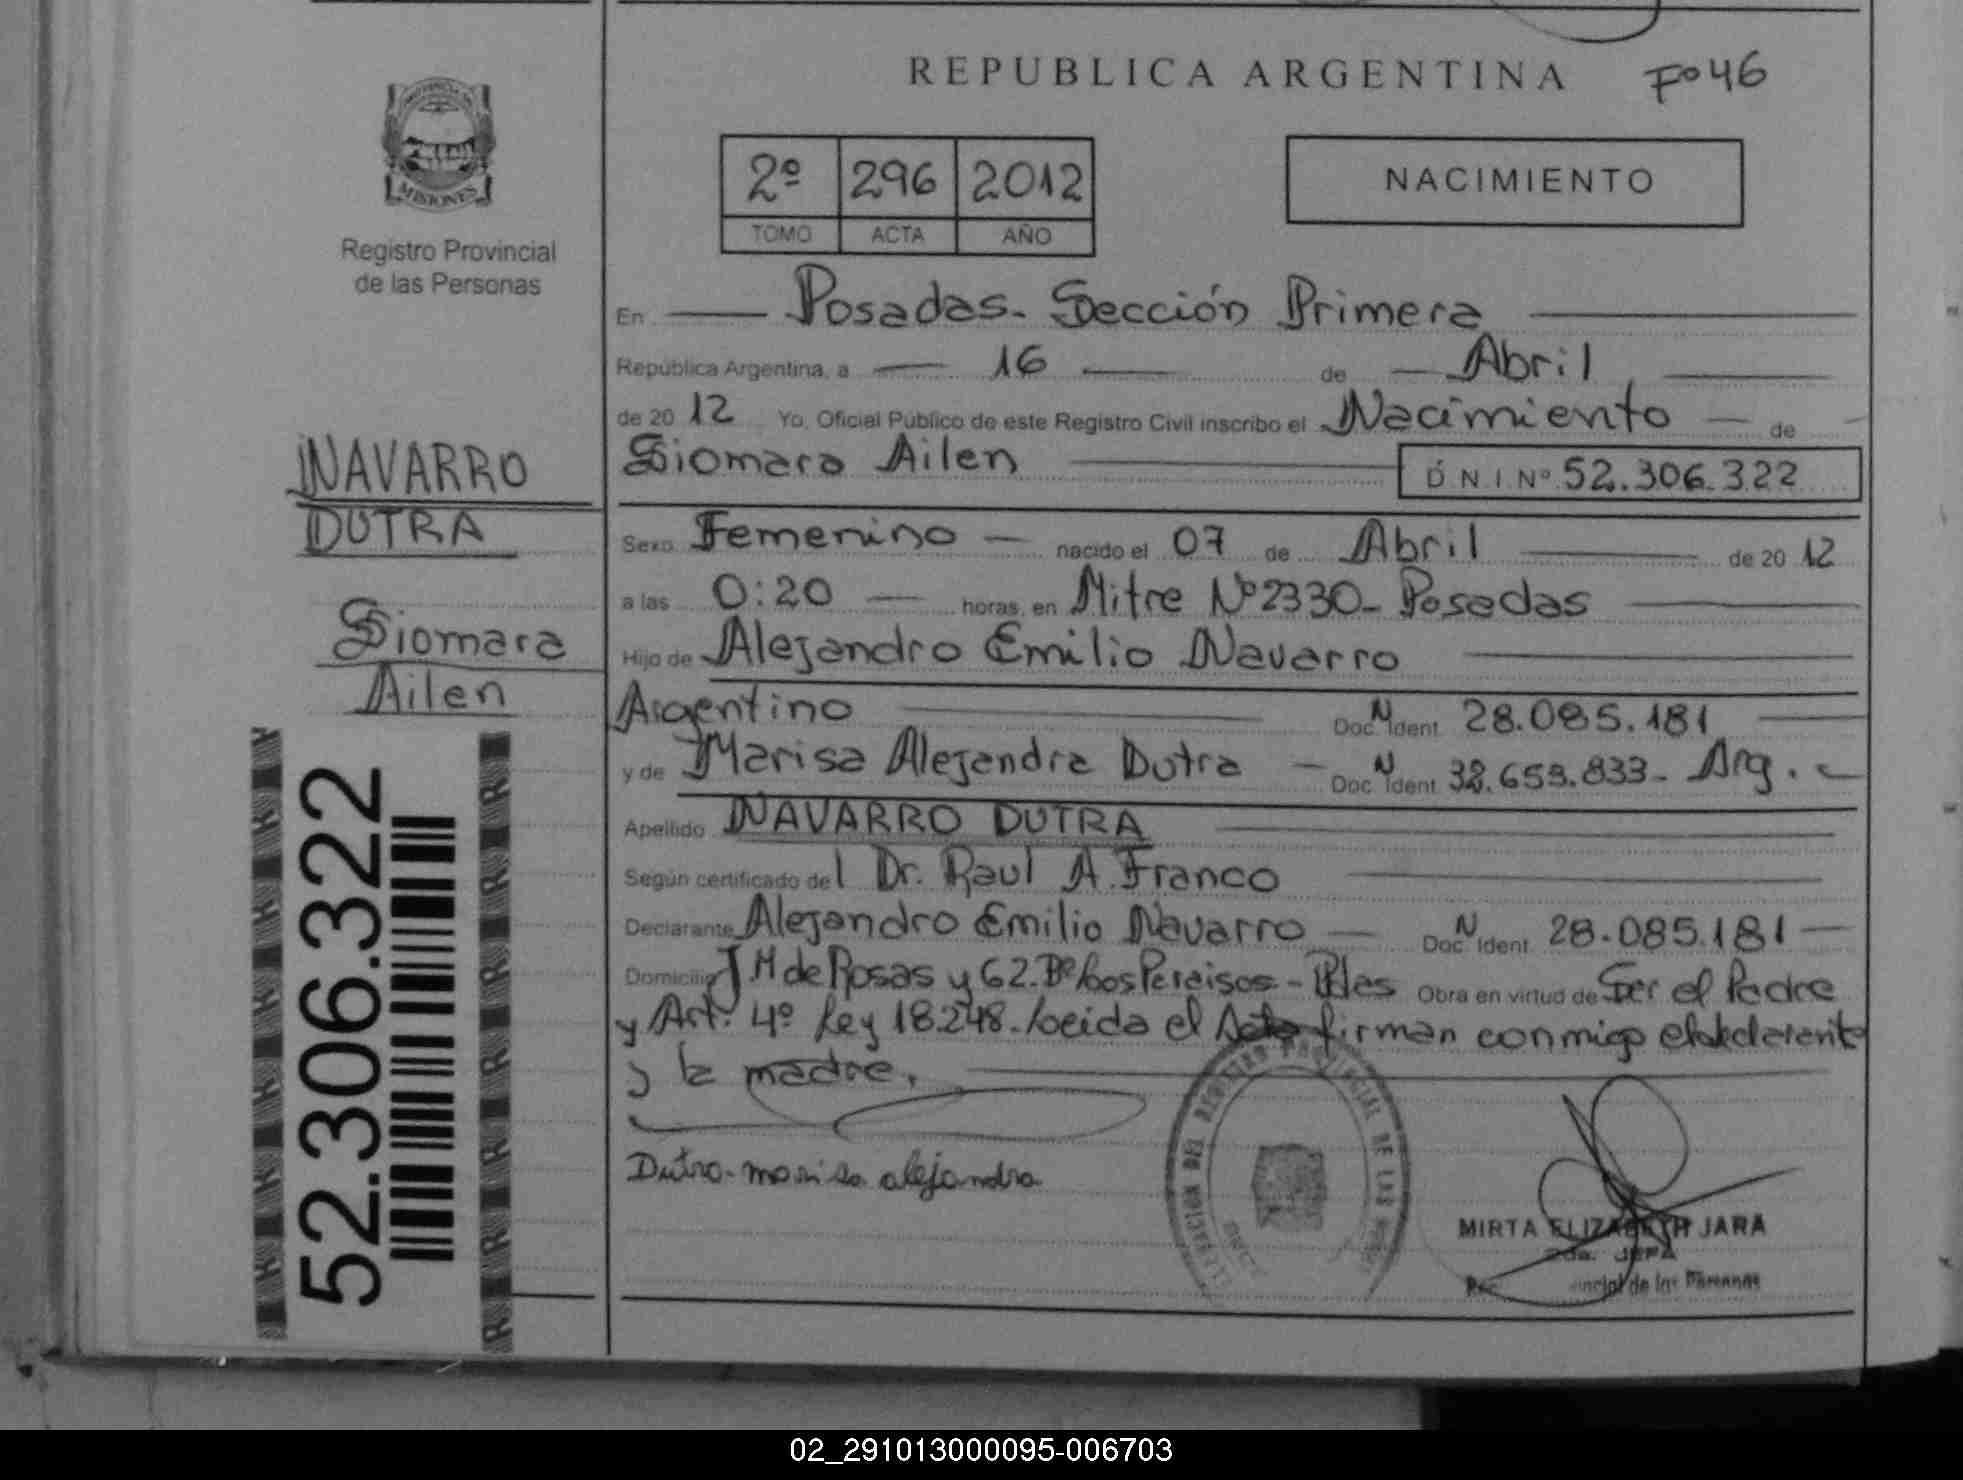 REPUBLICA ARGENTINA Fº46
PROVINCIA DE
MISIONES
Registro Provincial
de las Personas
2º 296 2012
TOMO ACTA AÑO
NACIMIENTO
En Posadas. Sección Primera
República Argentina, a 16 de Abril
de 2012 Yo, Oficial Público de este Registro Civil inscribo el Nacimiento de
Siomara Ailen D.N.I. Nº 52.306.322
Sexo Femenino nacido el 07 de Abril de 2012
a las 0:20 horas, en Mitre Nº 2330_ Posadas
Hijo de Alejandro Emilio Navarro
Argentino Doc. N Ident. 28.085.181
y de Marisa Alejandra Dutra Doc. N Ident. 32.653.833_ Arg.
Apellido NAVARRO DUTRA
Según certificado del Dr. Raul A. Franco
Declarante Alejandro Emilio Navarro Doc. N Ident. 28.085.181
Domicilio J.M de Rosas y 62. Bº Los Paraisos - Pdas Obra en virtud de Ser el Padre
y Art. 4º Ley 18.248. Leida el Acta firman conmigo el declarante
y la madre.
Dutra. marisa alejandra
MIRTA ELIZABETH JARA
2da. JEFA
de las Personas
NAVARRO
DUTRA
Siomara
Ailen
52.306.322
02_291013000095-006703